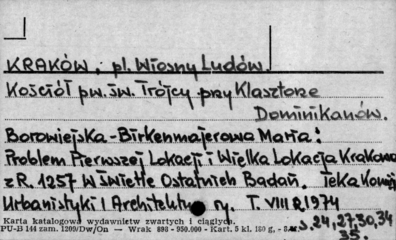 KRAKÓW, pl. Wiosny Ludów.
Kościół pw. św. Trójcy przy Klasztorze
Dominikanów.
Borowiejska-Birkenmajerowa Maria:
Problem Pierwszej Lokacji i Wielka Lokacja Krakowa
z R. 1257 w świetle Ostatnich Badań. Teka Komisji
Urbanistyki i Architektury. T. VIII R. 1974
Karta katalogowa wydawnictw zwartych i ciągłych.
s. 24, 27, 30, 34
PU-B 144 zam. 1209/Dw/On — Wrak 893 - 950.000 - Kart. 5 kl. 180 g,
35.